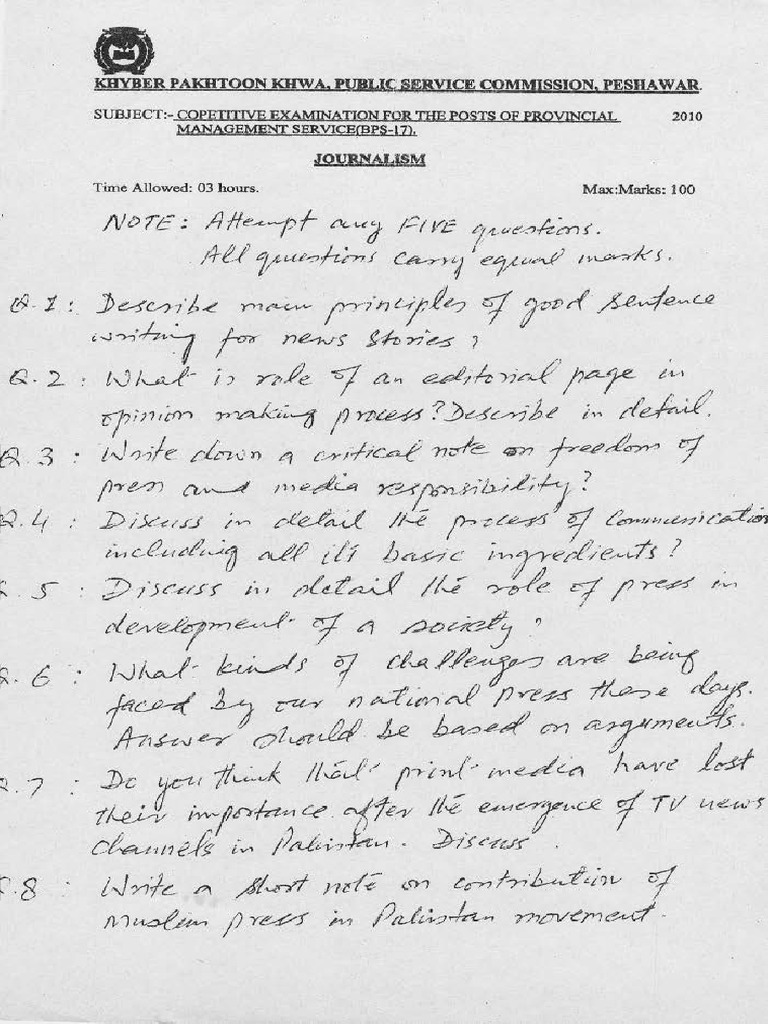 KHYBER PAKHTOON KHWA, PUBLIC SERVICE COMMISSION, PESHAWAR.
SUBJECT:- COPETITIVE EXAMINATION FOR THE POSTS OF PROVINCIAL 2010
MANAGEMENT SERVICE(BPS-17).
JOURNALISM
Time Allowed: 03 hours. Max:Marks: 100
NOTE: Attempt any FIVE questions.
All questions carry equal marks.
Q.1: Describe main principles of good sentence
writing for news stories?
Q.2: What is role of an editorial page in
opinion making process? Describe in detail.
Q.3: Write down a critical note on freedom of
press and media responsibility?
Q.4: Discuss in detail the process of communication
including all it's basic ingredients?
Q.5: Discuss in detail the role of press in
development of a society?
Q.6: What kinds of challenges are being
faced by our national press these days.
Answer should be based on arguments.
Q.7: Do you think that print media have lost
their importance after the emergence of TV news
channels in Pakistan. Discuss.
Q.8: Write a short note on contribution of
Muslim press in Pakistan movement.